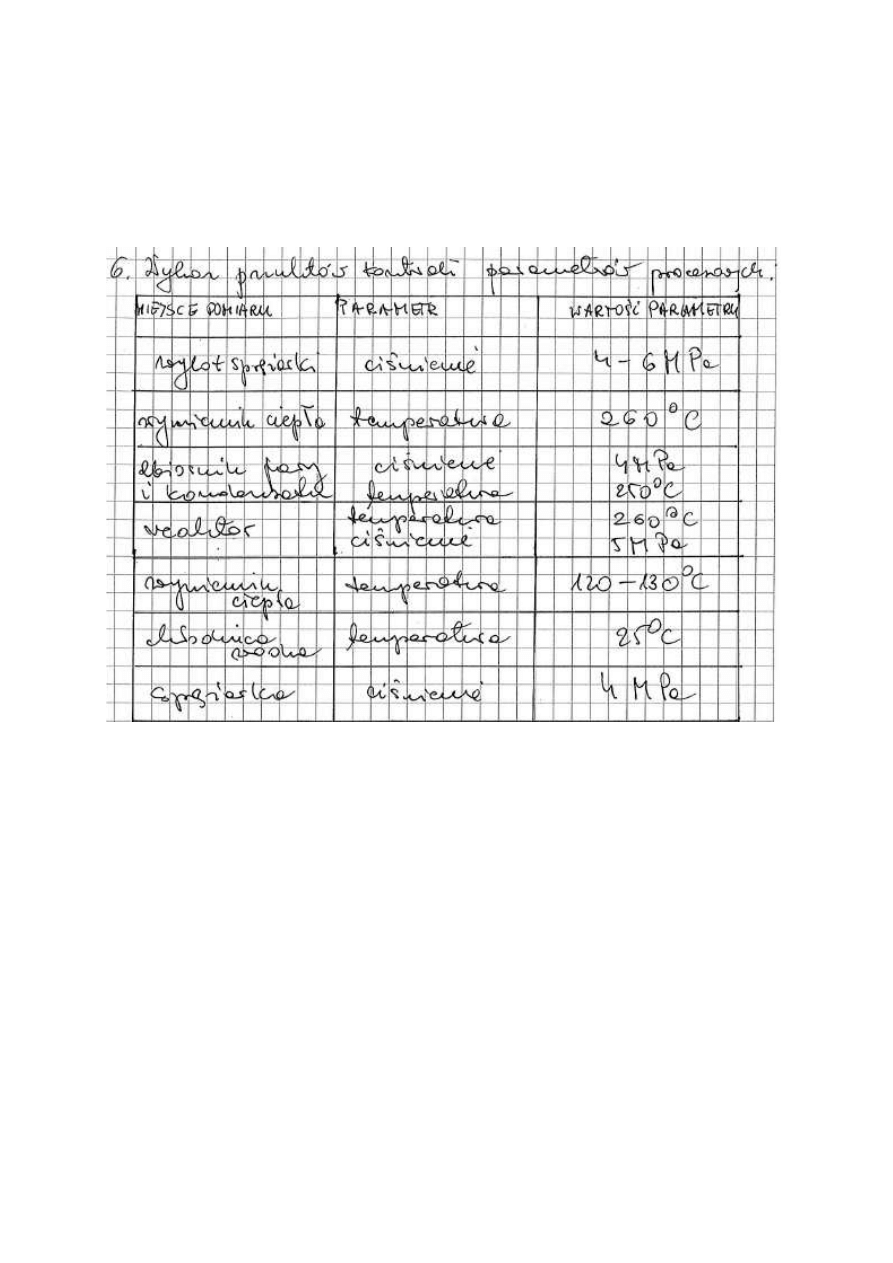 6. Wykaz punktów kontroli parametrów procesowych:
MIEJSCE POMIARU PARAMETR WARTOŚĆ PARAMETRU
wylot sprężarki ciśnienie 4-6 MPa
wymiennik ciepła temperatura 260°C
zbiornik pary ciśnienie 4 MPa
i kondensatu temperatura 250°C
reaktor temperatura 260°C
ciśnienie 5 MPa
wymiennik temperatura 120-130°C
ciepła
chłodnica temperatura 25°C
wodna
sprężarka ciśnienie 4 MPa